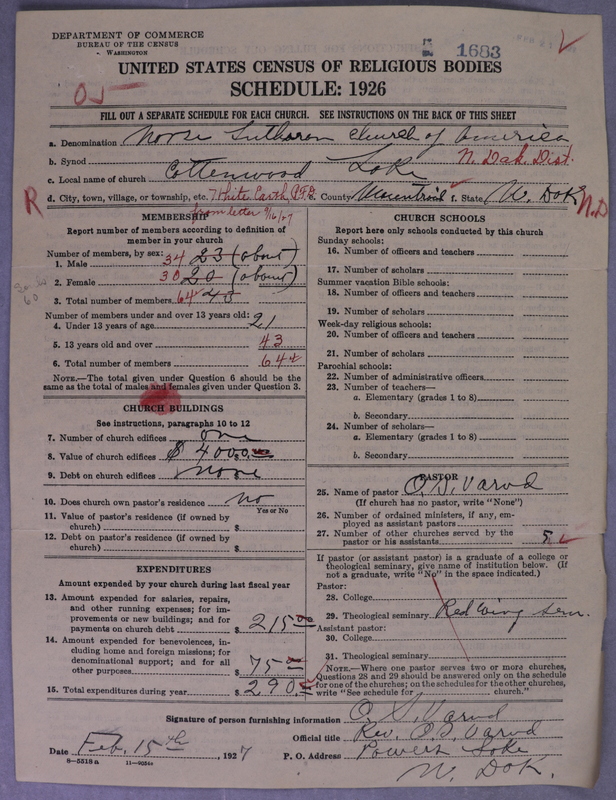 DEPARTMENT OF COMMERCE
BUREAU OF THE CENSUS
WASHINGTON
1683
UNITED STATES CENSUS OF RELIGIOUS BODIES
SCHEDULE: 1926
FILL OUT A SEPARATE SCHEDULE FOR EACH CHURCH. SEE INSTRUCTIONS ON THE BACK OF THIS SHEET
a. Denomination Norse Lutheran Church of America
b. Synod N. Dak. Dist.
c. Local name of church Cottonwood Lake
R d. City, town, village, or township, etc. White Earth R.F.D. County Mountrail f. State N. Dok N.D
from letter 9/16/27
MEMBERSHIP
Report number of members according to definition of member in your church
Number of members, by sex:
1. Male 34 23 (about)
2. Female 30 20 (about)
3. Total number of members 64 43
Number of members under and over 13 years old:
4. Under 13 years of age 21
5. 13 years old and over 43
6. Total number of members 64
NOTE.—The total given under Question 6 should be the same as the total of males and females given under Question 3.
CHURCH BUILDINGS
See instructions, paragraphs 10 to 12
7. Number of church edifices one
8. Value of church edifices $ 4000.
9. Debt on church edifices none
10. Does church own pastor's residence no
Yes or No
11. Value of pastor's residence (if owned by church) $
12. Debt on pastor's residence (if owned by church) $
EXPENDITURES
Amount expended by your church during last fiscal year
13. Amount expended for salaries, repairs, and other running expenses; for improvements or new buildings; and for payments on church debt $ 215.00
14. Amount expended for benevolences, including home and foreign missions; for denominational support; and for all other purposes $ 75.00
15. Total expenditures during year $ 290.
CHURCH SCHOOLS
Report here only schools conducted by this church
Sunday schools:
16. Number of officers and teachers
17. Number of scholars
Summer vacation Bible schools:
18. Number of officers and teachers
19. Number of scholars
Week-day religious schools:
20. Number of officers and teachers
21. Number of scholars
Parochial schools:
22. Number of administrative officers
23. Number of teachers—
a. Elementary (grades 1 to 8)
b. Secondary
24. Number of scholars—
a. Elementary (grades 1 to 8)
b. Secondary
PASTOR
25. Name of pastor O. S. Varvd
(If church has no pastor, write "None")
26. Number of ordained ministers, if any, employed as assistant pastors
27. Number of other churches served by the pastor or his assistants 5
If pastor (or assistant pastor) is a graduate of a college or theological seminary, give name of institution below. (If not a graduate, write "No" in the space indicated.)
Pastor:
28. College
29. Theological seminary Red Wing Sem.
Assistant pastor:
30. College
31. Theological seminary
NOTE.—Where one pastor serves two or more churches, Questions 28 and 29 should be answered only on the schedule for one of the churches; on the schedules for the other churches, write "See schedule for church."
Signature of person furnishing information O. S. Varvd
Official title Rev. O. S. Varvd
Date Feb. 15th, 1927 P. O. Address Powers Lake
N. Dok.
8—5518 a 11—9054